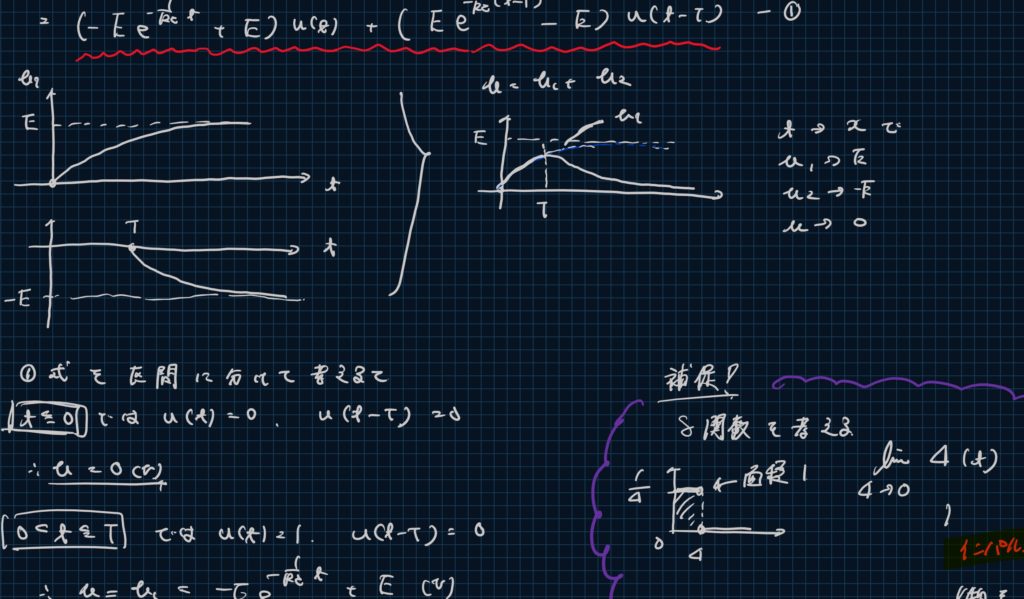 = (-E e^{-\frac{1}{RC}t} + E) u(t) + (E e^{-\frac{1}{RC}(t-T)} - E) u(t-T) - ①
u1
E
t
T
t
-E
u = u1 + u2
u1
E
T
t → ∞ で
u1 → E
u2 → -E
u → 0
① 式を区間に分けて考えると
t ≦ 0 では u(t) = 0, u(t-T) = 0
∴ u = 0 (V)
0 < t ≦ T では u(t) = 1, u(t-T) = 0
∴ u = u1 = -E e^{-\frac{1}{RC}t} + E (V)
補足!
δ関数を考える
1/Δ
←面積 1
0
Δ
lim Δ(t)
Δ→0
インパル